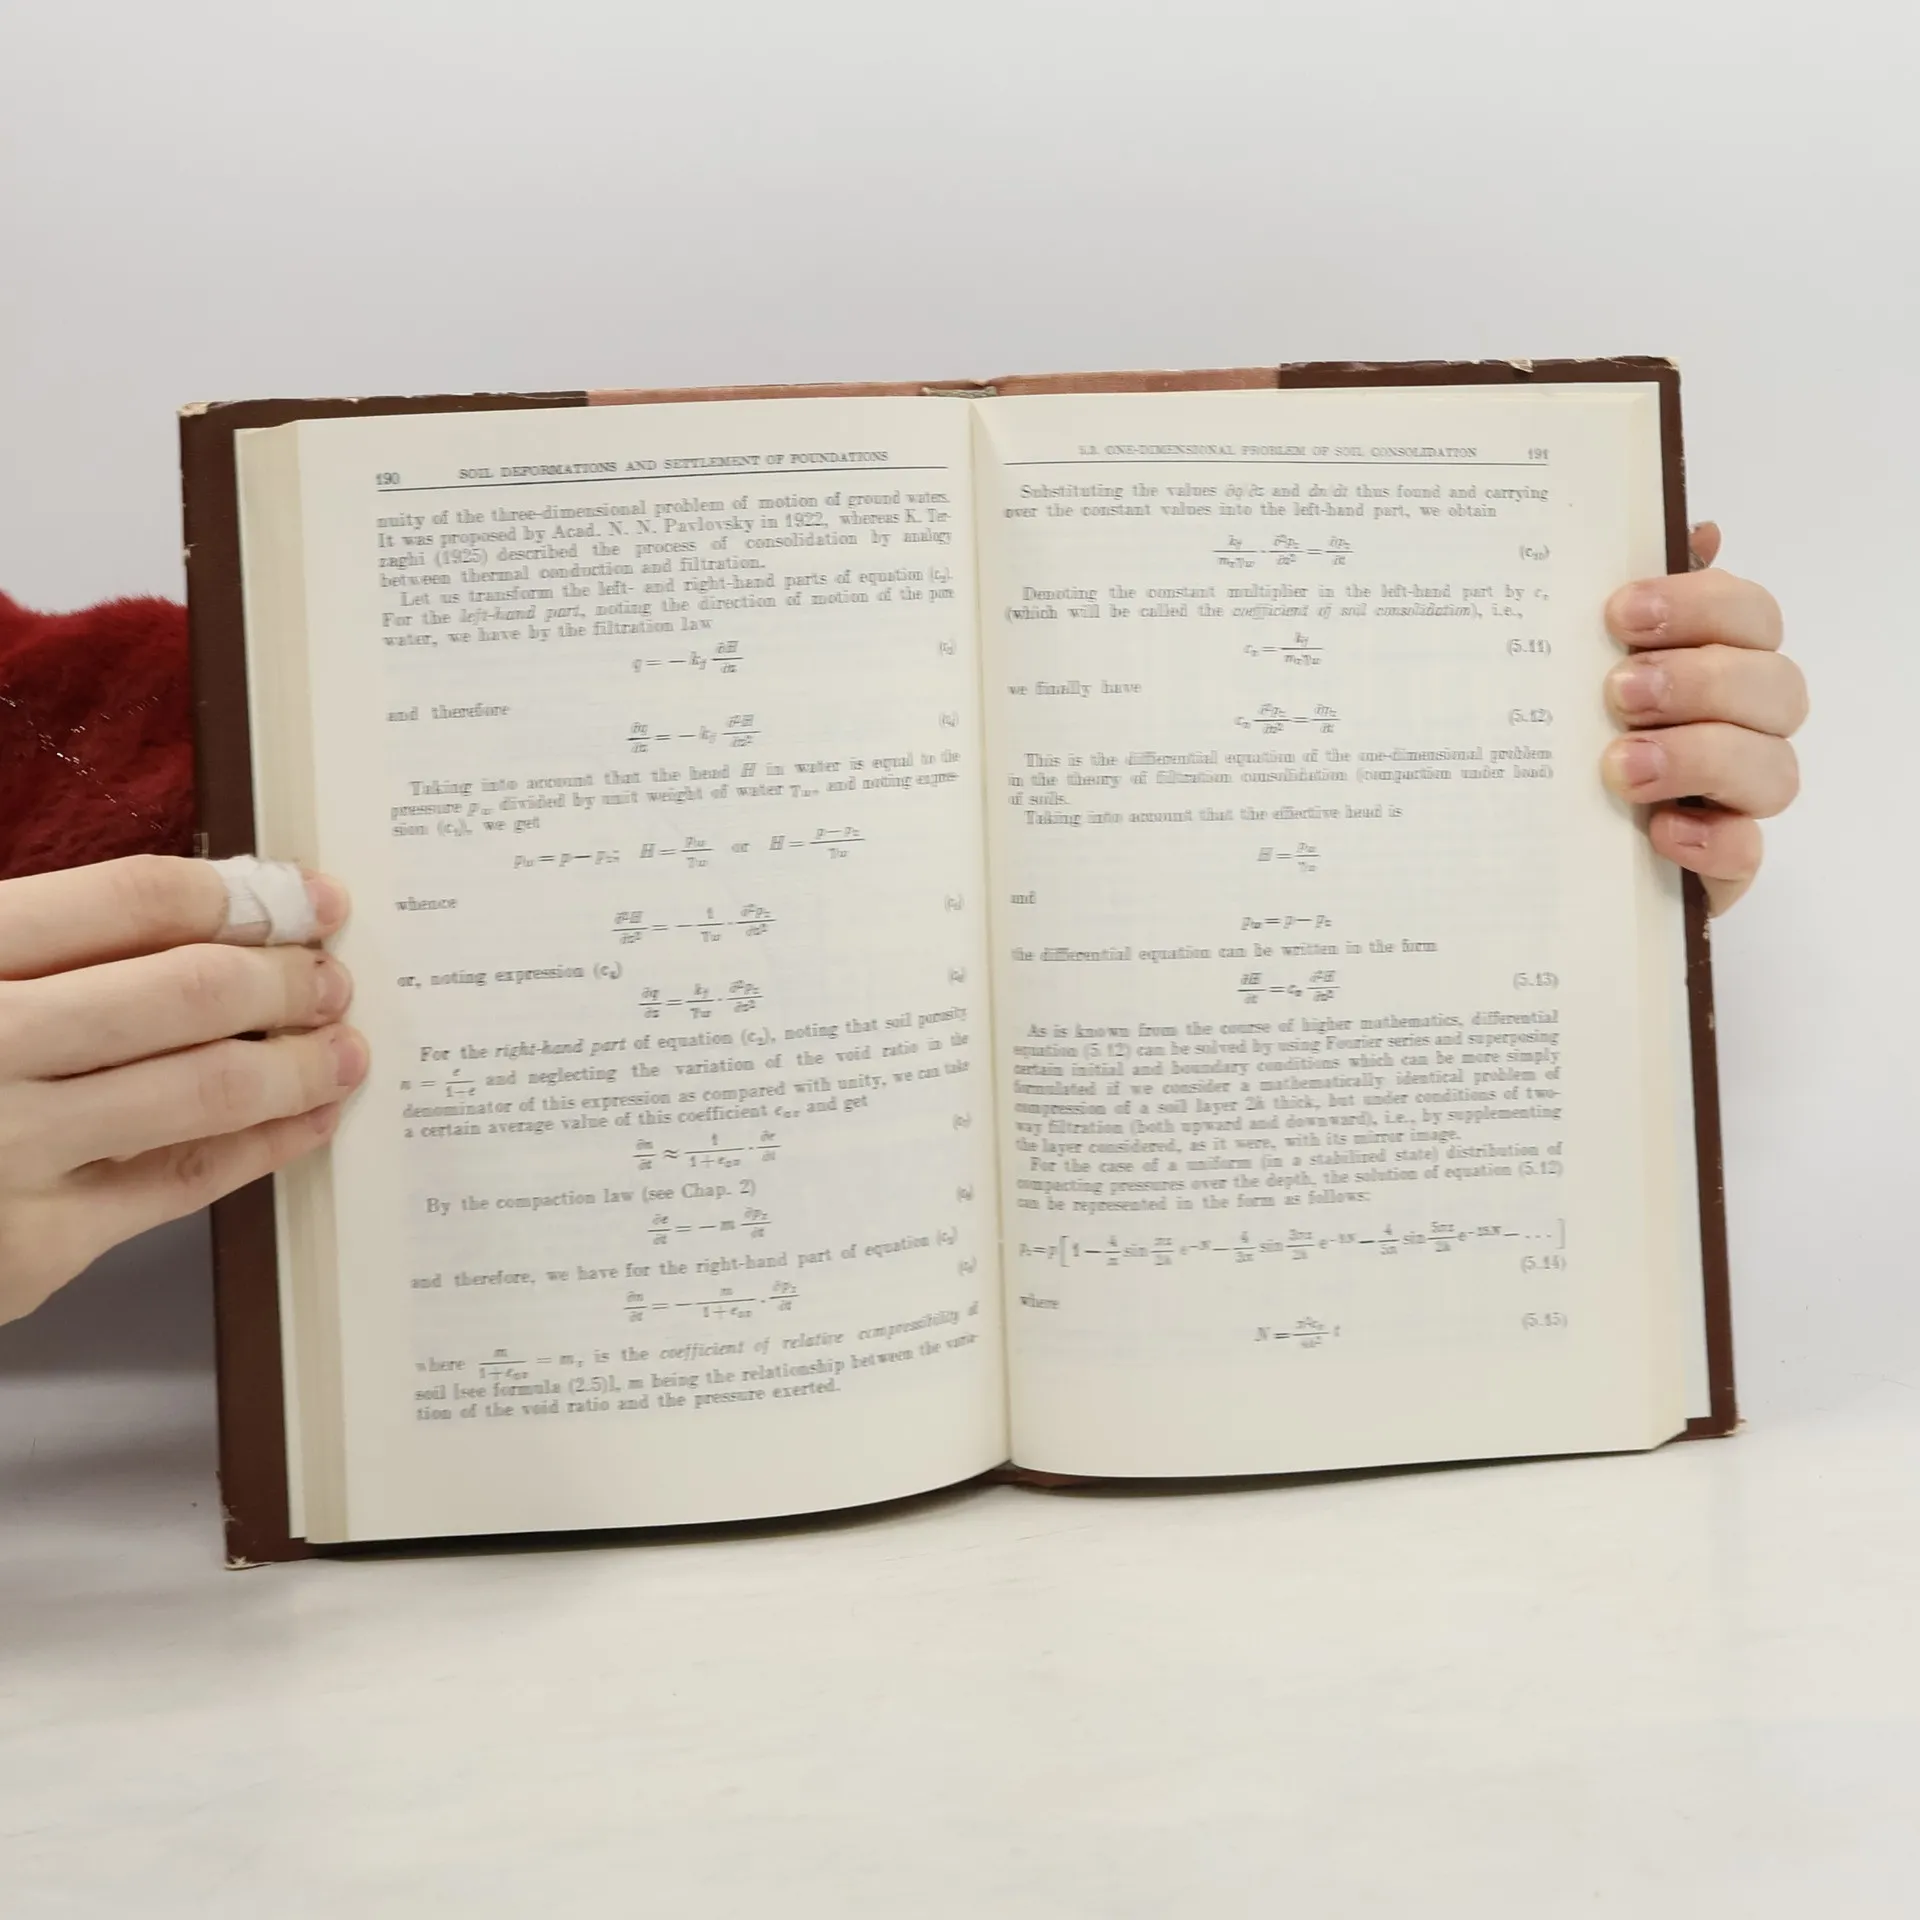 190 SOIL DEFORMATIONS AND SETTLEMENT OF FOUNDATIONS
nuity of the three-dimensional problem of motion of ground waters.
It was proposed by Acad. N. N. Pavlovsky in 1922, whereas K. Ter-
zaghi (1925) described the process of consolidation by analogy
between thermal conduction and filtration.
Let us transform the left- and right-hand parts of equation (c₂).
For the left-hand part, noting the direction of motion of the pore
water, we have by the filtration law
q = −k_f ∂H/∂z (c₃)
and therefore
∂q/∂z = −k_f ∂²H/∂z² (c₄)
Taking into account that the head H in water is equal to the
pressure p_w divided by unit weight of water γ_w, and noting expres-
sion (c₁), we get
p_w = p − p_z; H = p_w/γ_w or H = (p − p_z)/γ_w
whence
∂²H/∂z² = −1/γ_w · ∂²p_z/∂z² (c₅)
or, noting expression (c₄)
∂q/∂z = k_f/γ_w · ∂²p_z/∂z² (c₆)
For the right-hand part of equation (c₂), noting that soil porosity
n = e/(1+e) and neglecting the variation of the void ratio in the
denominator of this expression as compared with unity, we can take
a certain average value of this coefficient e_av and get
∂n/∂t ≈ 1/(1+e_av) · ∂e/∂t (c₇)
By the compaction law (see Chap. 2)
∂e/∂t = −m ∂p_z/∂t (c₈)
and therefore, we have for the right-hand part of equation (c₂)
∂n/∂t = −m/(1+e_av) · ∂p_z/∂t (c₉)
where m/(1+e_av) = m_v is the coefficient of relative compressibility of
soil [see formula (2.5)], m being the relationship between the varia-
tion of the void ratio and the pressure exerted.
5.3. ONE-DIMENSIONAL PROBLEM OF SOIL CONSOLIDATION 191
Substituting the values ∂q/∂z and ∂n/∂t thus found and carrying
over the constant values into the left-hand part, we obtain
k_f/(m_vγ_w) · ∂²p_z/∂z² = ∂p_z/∂t (c₁₀)
Denoting the constant multiplier in the left-hand part by c_v
(which will be called the coefficient of soil consolidation), i.e.,
c_v = k_f/(m_vγ_w) (5.11)
we finally have
c_v ∂²p_z/∂z² = ∂p_z/∂t (5.12)
This is the differential equation of the one-dimensional problem
in the theory of filtration consolidation (compaction under load)
of soils.
Taking into account that the effective head is
H = p_w/γ_w
and
p_w = p − p_z
the differential equation can be written in the form
∂H/∂t = c_v ∂²H/∂z² (5.13)
As is known from the course of higher mathematics, differential
equation (5.12) can be solved by using Fourier series and superposing
certain initial and boundary conditions which can be more simply
formulated if we consider a mathematically identical problem of
compression of a soil layer 2h thick, but under conditions of two-
way filtration (both upward and downward), i.e., by supplementing
the layer considered, as it were, with its mirror image.
For the case of a uniform (in a stabilized state) distribution of
compacting pressures over the depth, the solution of equation (5.12)
can be represented in the form as follows:
p_z = p[1 − 4/π sin πz/2h e^−N − 4/3π sin 3πz/2h e^−9N − 4/5π sin 5πz/2h e^−25N − ...]
(5.14)
where
N = π²c_v/4h² t (5.15)